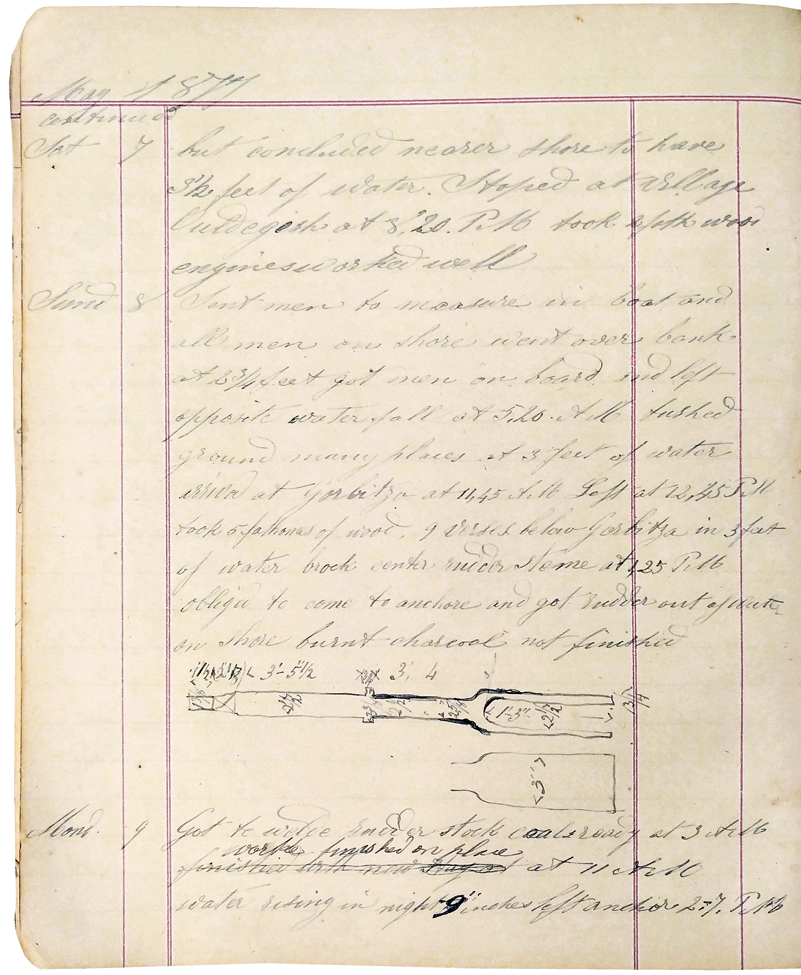 May 1877
continued
Sat 7 but concluded nearer shore to have
3 1/2 feet of water. Stoped at village
at 8,20. P.M took
engines worked well
Sund 8 Sent men to measure in boat and
all men on shore went over bank
at 2 3/4 feet got men on board, and left
opposite water fall at 5,20. A.M tushed
ground many places at 3 feet of water
arived at Gorbitza at 11,45 A.M Left at 12,45 P.M
took 5 fathomes of wood, 9 Verses below Gorbitza in 3 feet
of water brock center ruder steme at 1,25 P.M
obliged to come to anchore and got rudder out of water
on shore burnt charcoal not finished
1 1/2 3'-5 1/2 3'. 4
2 1/2 1'-3" 2 1/2
<3">
Mond. 9 Got to work ruder stock coals ready at 3 A.M
work finished on place
finished at 11 A.M
water rising in night 9" inches left anchor 2-7. P.M